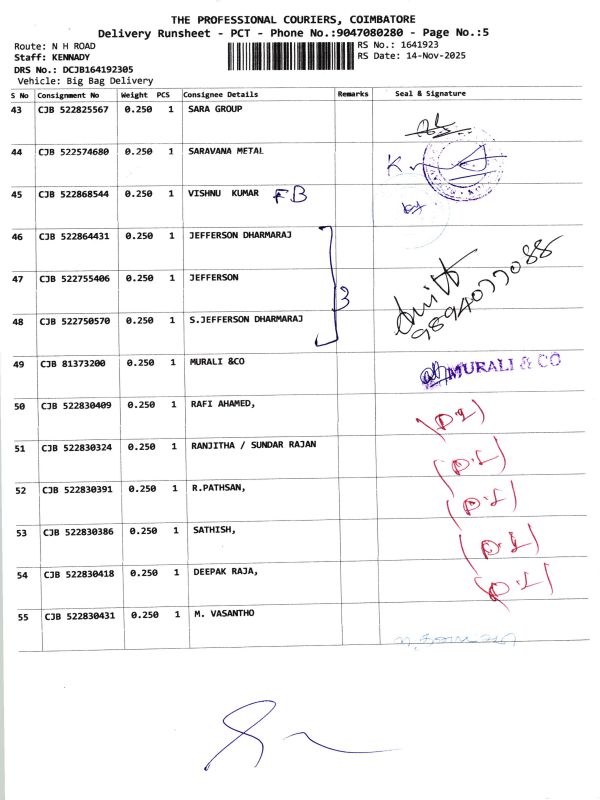 THE PROFESSIONAL COURIERS, COIMBATORE
Delivery Runsheet - PCT - Phone No.:9047080280 - Page No.:5
Route: N H ROAD RS No.: 1641923
Staff: KENNADY RS Date: 14-Nov-2025
DRS No.: DCJB164192305
Vehicle: Big Bag Delivery
S No Consignment No Weight PCS Consignee Details Remarks Seal & Signature
43 CJB 522825567 0.250 1 SARA GROUP
44 CJB 522574680 0.250 1 SARAVANA METAL
45 CJB 522868544 0.250 1 VISHNU KUMAR FB
46 CJB 522864431 0.250 1 JEFFERSON DHARMARAJ
47 CJB 522755406 0.250 1 JEFFERSON 3
9894077088
48 CJB 522750570 0.250 1 S.JEFFERSON DHARMARAJ
49 CJB 81373200 0.250 1 MURALI &CO MURALI & CO
50 CJB 522830409 0.250 1 RAFI AHAMED, (D.L)
51 CJB 522830324 0.250 1 RANJITHA / SUNDAR RAJAN (D.L)
52 CJB 522830391 0.250 1 R.PATHSAN, (D.L)
53 CJB 522830386 0.250 1 SATHISH, (D.L)
54 CJB 522830418 0.250 1 DEEPAK RAJA, (D.L)
55 CJB 522830431 0.250 1 M. VASANTHO